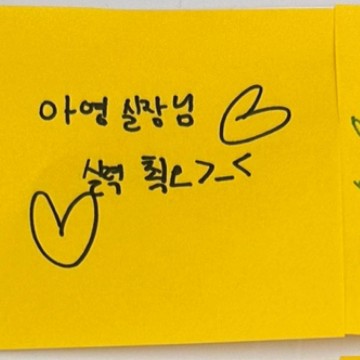 아영 실장님
실력 최고 >_<